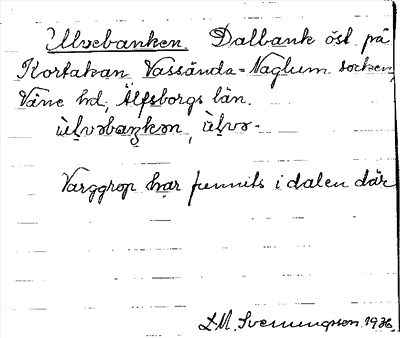 Ulvebanken. Dalbank öst på
Kortakan Vassända-Naglum socken,
Väne hd, Älfsborgs län.
ùl̥vəbaŋkən, ùl̥və-
Varggrop har funnits i dalen där
L.M. Svenungsson 1936.